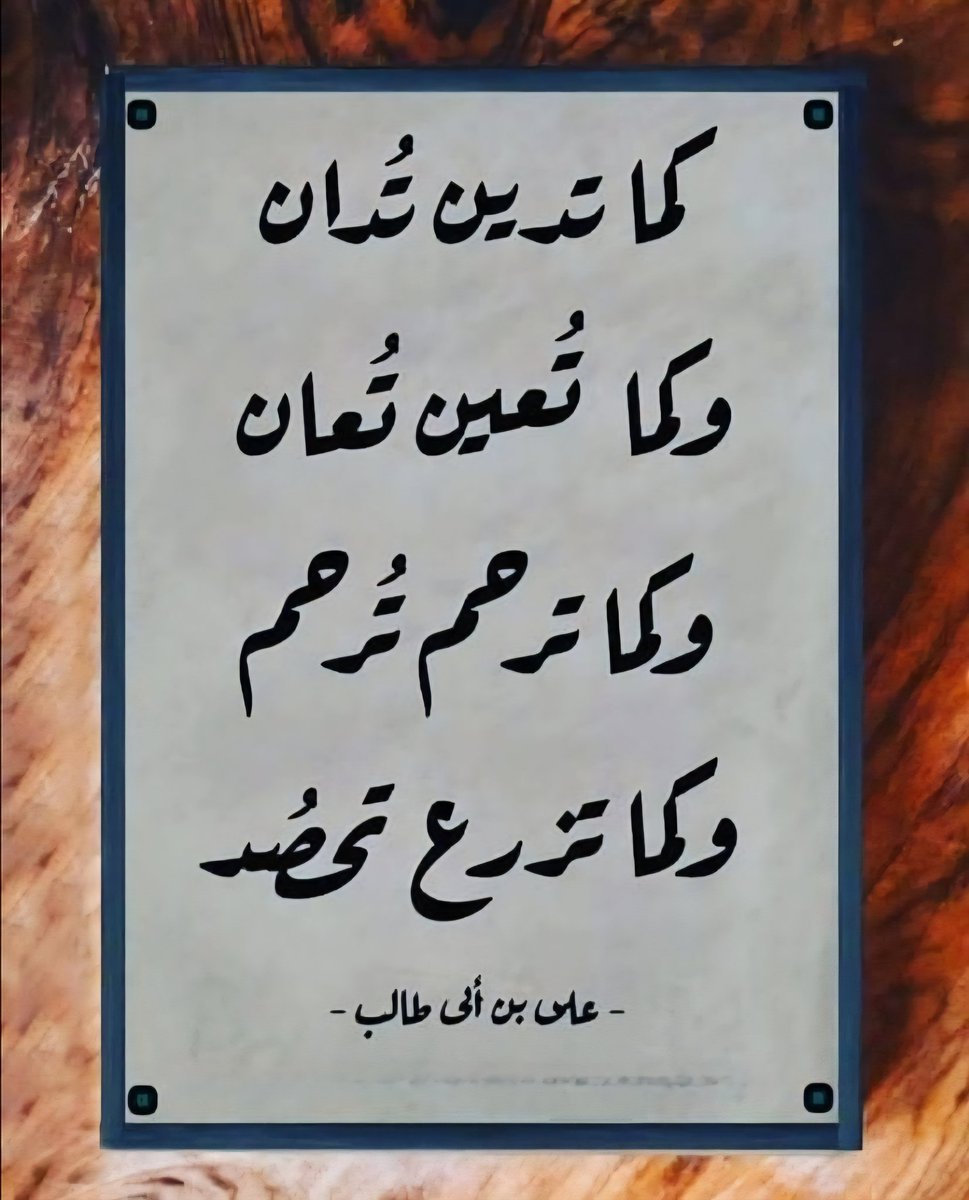 كما تدين تُدان
وكما تُعين تُعان
وكما ترحم تُرحم
وكما تزرع تحصُد
- علي بن أبي طالب -